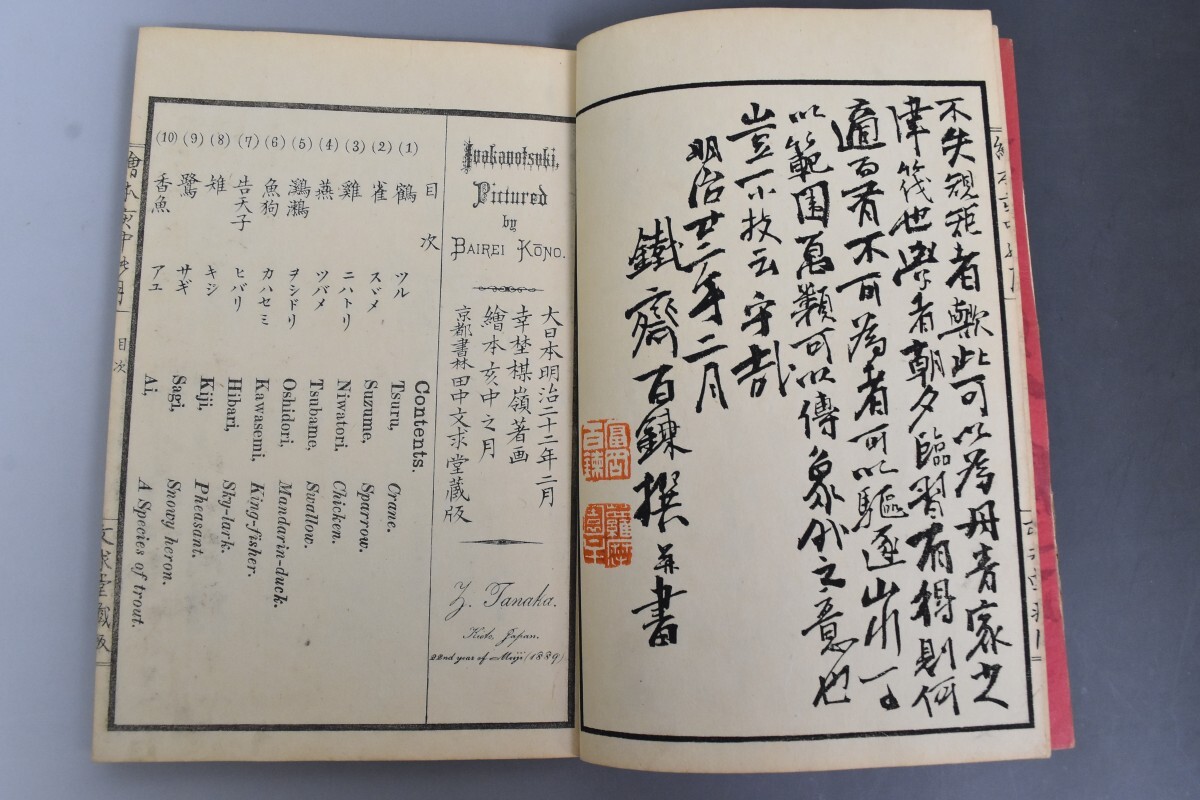 不失規矩者歟此可以為丹青家之
津筏也學者朝夕臨習有得則何
適而不可為者可以驅逐山川
以範圍萬類可以傳象外之意也
豈一小技云乎哉
明治廿二年二月
鐵齋百鍊撰并書
富岡百鍊
Inakanotsuki,
Pictured
by
BAIREI KŌNO.
大日本明治二十二年二月
幸埜楳嶺著画
繪本亥中之月
京都書林田中文求堂藏版
Z. Tanaka.
Kioto, Japan.
22nd year of Meiji (1889)
目次
Contents.
(1) 鶴 ツル Tsuru, Crane.
(2) 雀 スヾメ Suzume, Sparrow.
(3) 雞 ニハトリ Niwatori. Chicken.
(4) 燕 ツバメ Tsubame, Swallow.
(5) 鸂鶒 ヲシドリ Oshidori, Mandarin-duck.
(6) 魚狗 カハセミ Kawasemi, King-fisher.
(7) 告天子 ヒバリ Hibari, Sky-lark.
(8) 雉 キジ Kiji, Pheasant.
(9) 鷺 サギ Sagi, Snowy heron.
(10) 香魚 アユ Ai, A Species of trout.
繪本亥中之月
目次
文求堂藏版